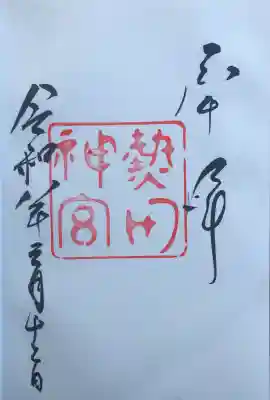 奉拝
熱田
神宮
令和八年三月十二日